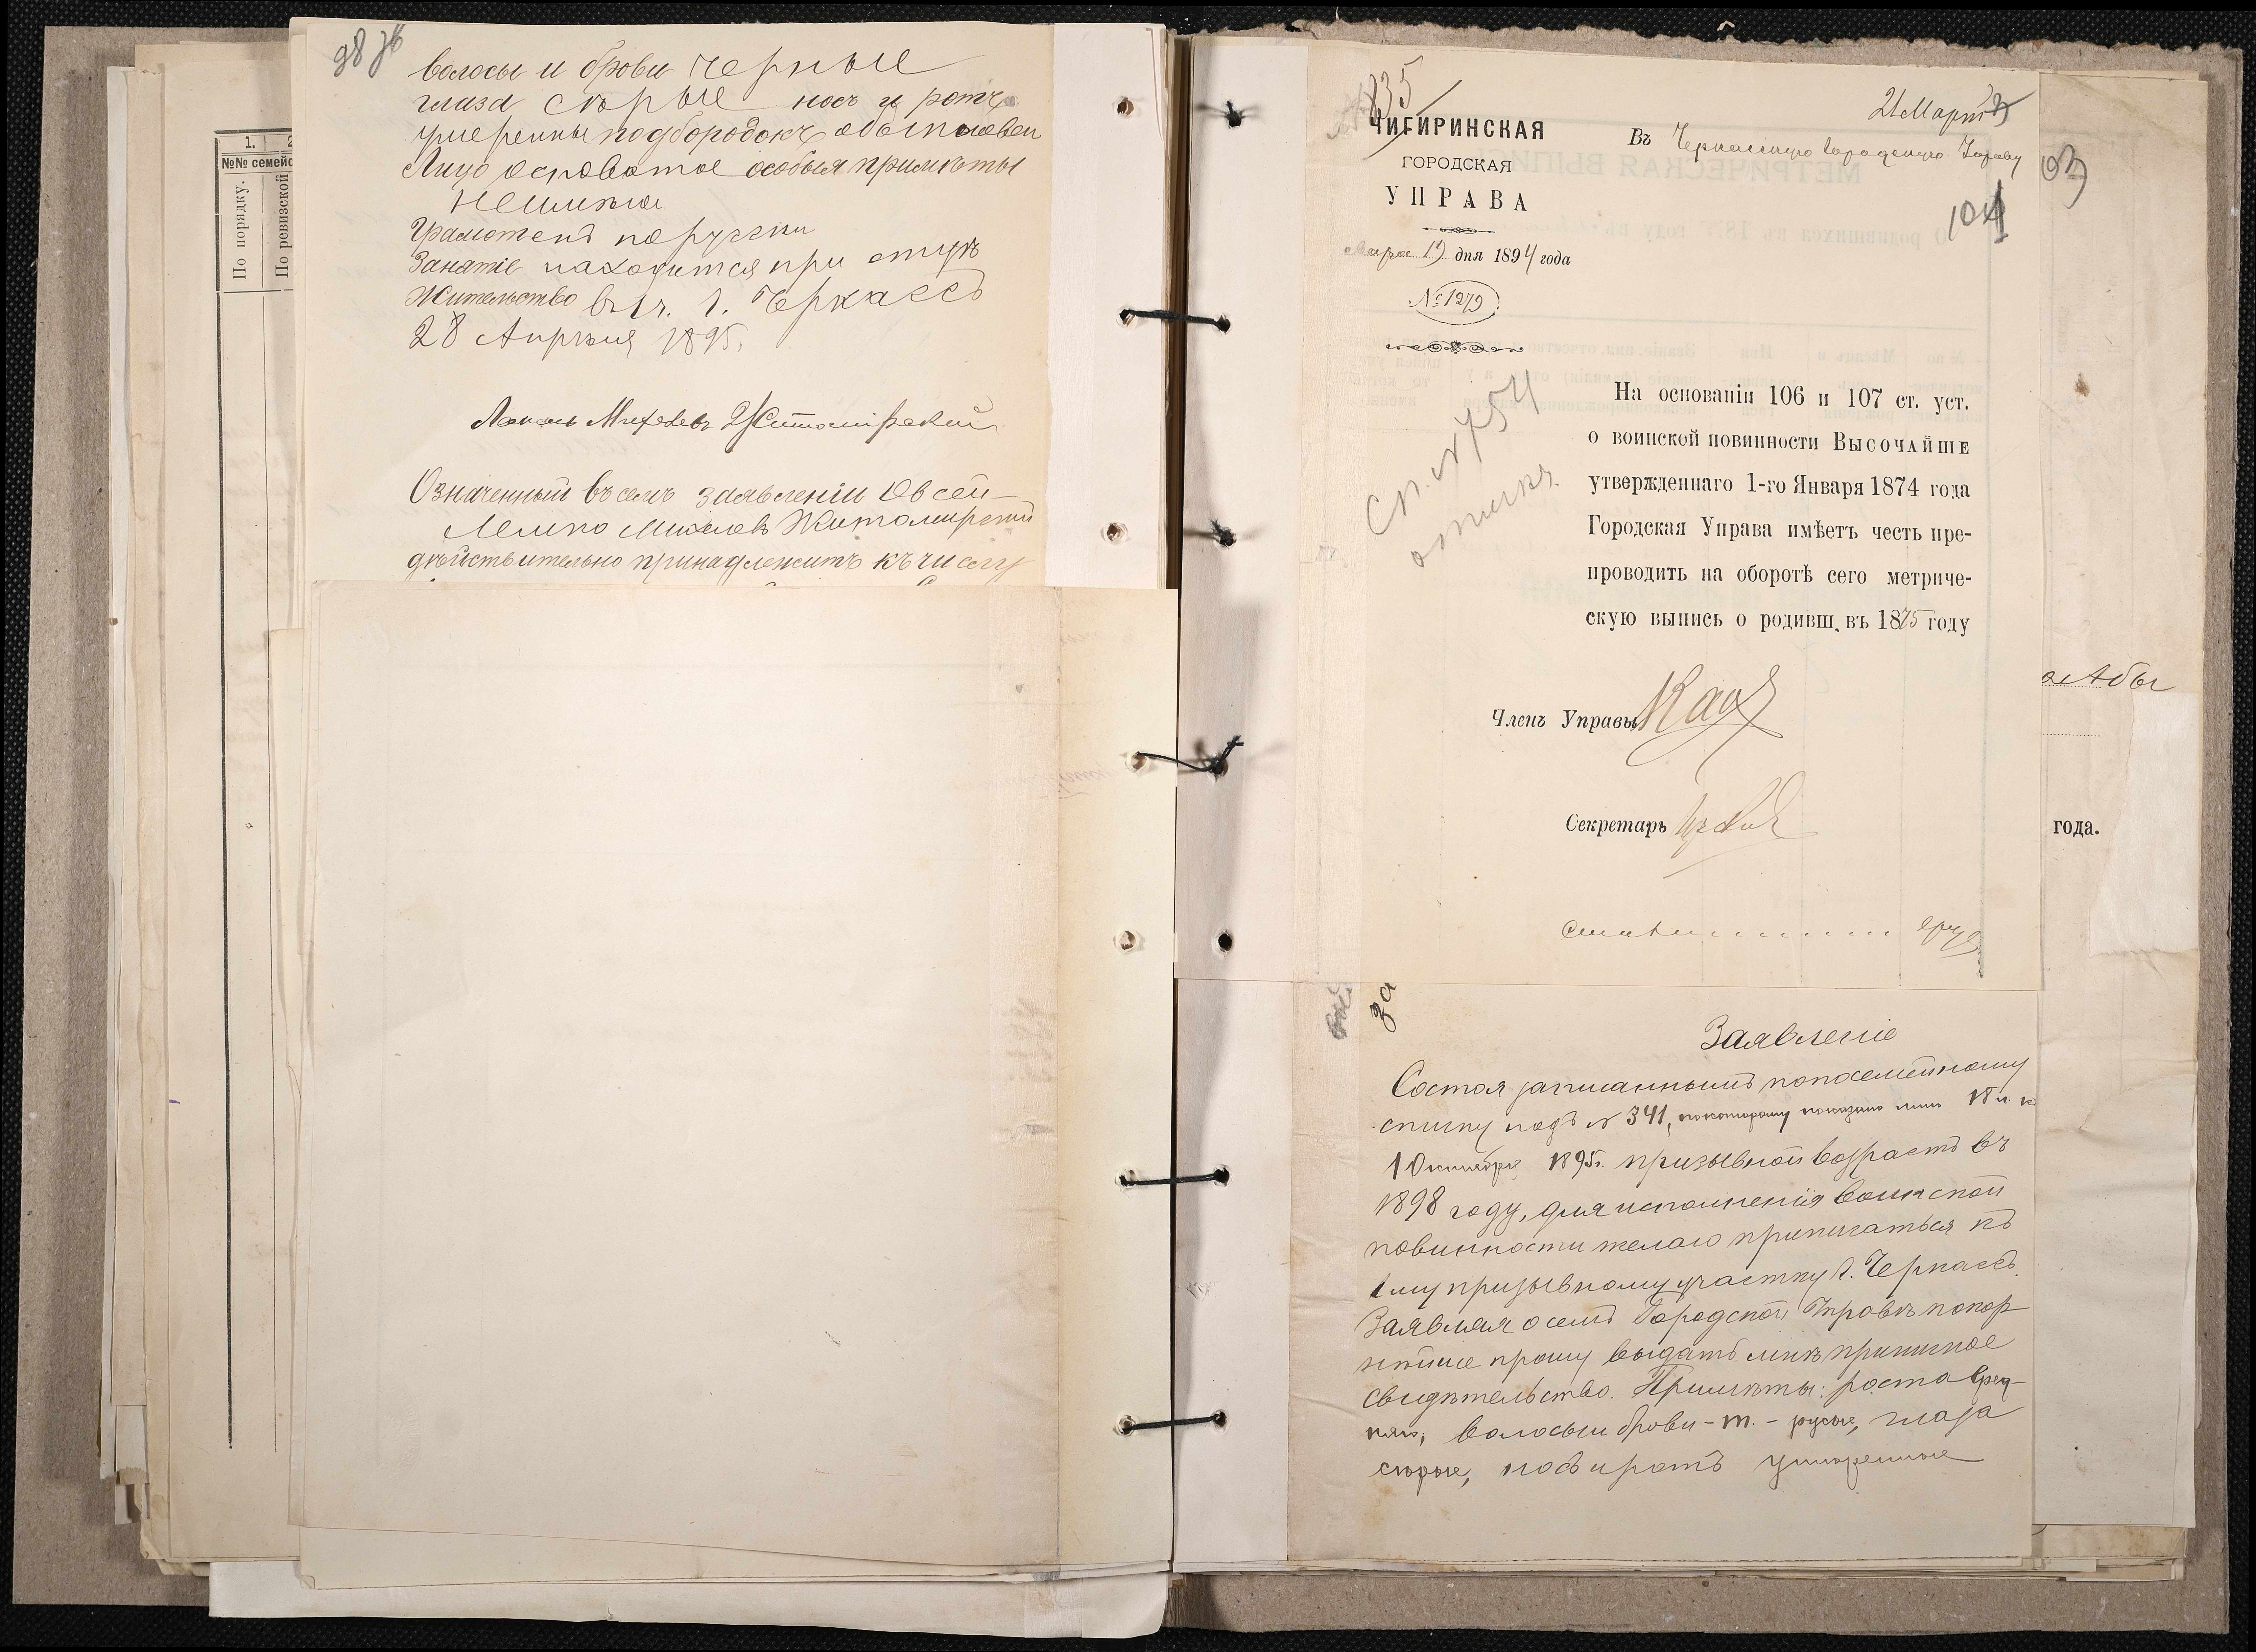 98 об
волосы и брови черные
глаза сѣрые носъ и ротъ
умѣренны подбородокъ обыкновен
Лицо осповатое особыя примѣты
неимѣю
Грамотенъ порусски
Занятіе находится при отцѣ
Жительство въ 1 ч. г. Черкассъ
28 Апрѣля 1895.
Михелевъ Житомірскій
Означенный въ семъ заявленіи Овсей-
Лейпо Михелевъ Житомирскій
дѣйствительно принадлежитъ къ числу
1.
№№ семейс
По порядку.
По ревизской
835
21 Марта
ЧИГИРИНСКАЯ
ГОРОДСКАЯ
УПРАВА
Въ Черкасскую Городскую Управу
103
104
Марта 19 дня 1894 года
№ 1279
Сп. № 754
На основаніи 106 и 107 ст. уст.
о воинской повинности Высочайше
утвержденнаго 1-го Января 1874 года
Городская Управа имѣетъ честь пре-
проводить на оборотѣ сего метриче-
скую выпись о родивш. въ 1875 году
Членъ Управы
Секретарь
года.
за
Заявленіе
Состоя записаннымъ попосемейному
списку подъ № 341, покоторому показано мнѣ 18 л. к
1 Октября 1895 г. призывной возрастъ въ
1898 году, для исполненія воинской
повинности желаю приписаться къ
1 му призывному участку г. Черкассъ.
Заявляя о семъ Городской Управѣ покор
нѣйше прошу выдать мнѣ приписное
свидѣтельство. Примѣты: роста сред-
няго, волосы и брови - т. - русые, глаза
сѣрые, носъ и ротъ умѣренные